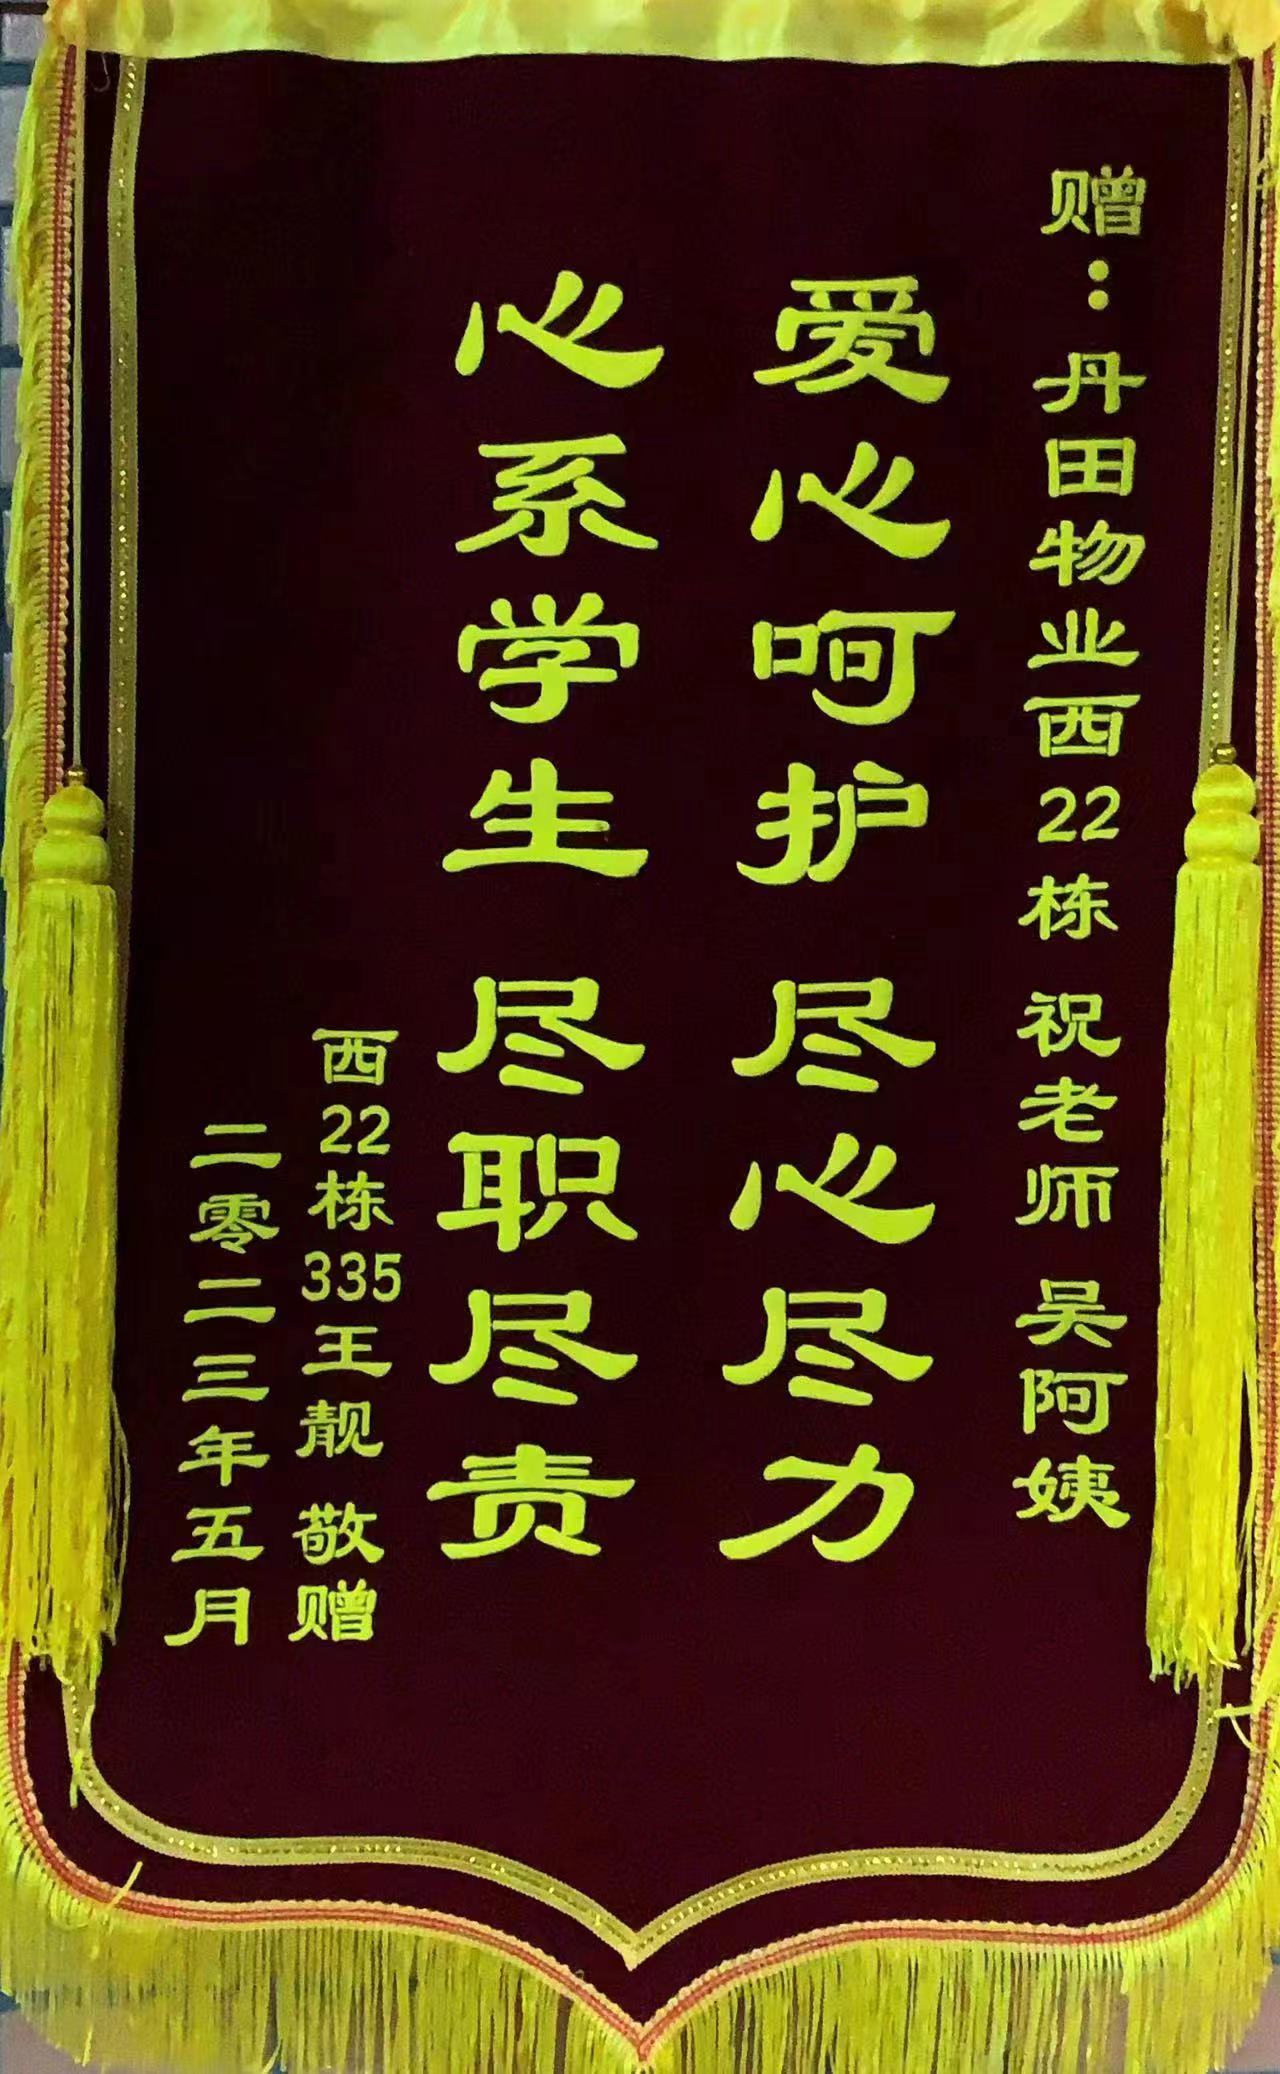 赠：丹田物业西22栋 祝老师 吴阿姨
爱心呵护 尽心尽力
心系学生 尽职尽责
西22栋335王靓 敬赠
二零二三年五月